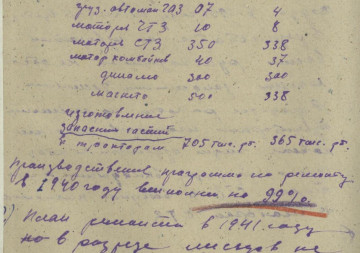 груз. автомаш ГАЗ 07 4
моторы ЧТЗ 10 8
моторы СТЗ 350 338
мотор комбайнов 40 37
динамо 300 300
магнето 500 338
изготовление
запасных частей
к тракторам 705 тыс. рт. 365 тыс. рт.
Производственная программа по ремонту
в 1940 году выполнена на 99%
План ремонта в 1941 году
но в разрезе месяцев не